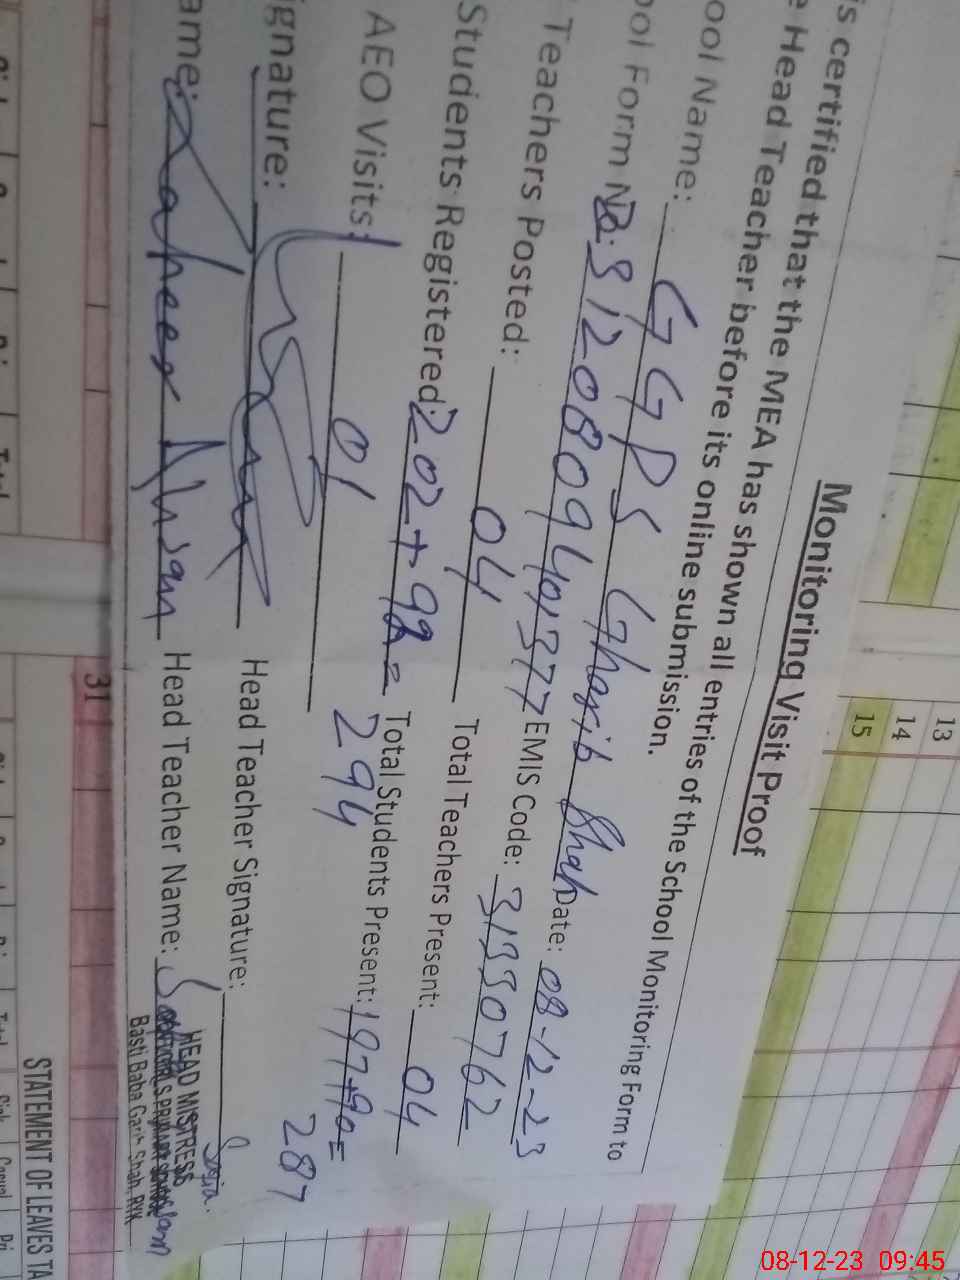 Monitoring Visit Proof
is certified that the MEA has shown all entries of the School Monitoring Form to
e Head Teacher before its online submission.
ool Name: GGPS Gharib Shah Date: 08-12-23
ool Form No: EMIS Code: 31330762
Teachers Posted: 04 Total Teachers Present: 04
Students Registered: 202+92= 294 Total Students Present: 197+90= 287
AEO Visits: 01
ignature: Head Teacher Signature: Sofia
ame: Zaheer Ahsan Head Teacher Name:
HEAD MISTRESS
Basti Baba Garib Shah, RYK
13
14
15
31
STATEMENT OF LEAVES TA
08-12-23 09:45